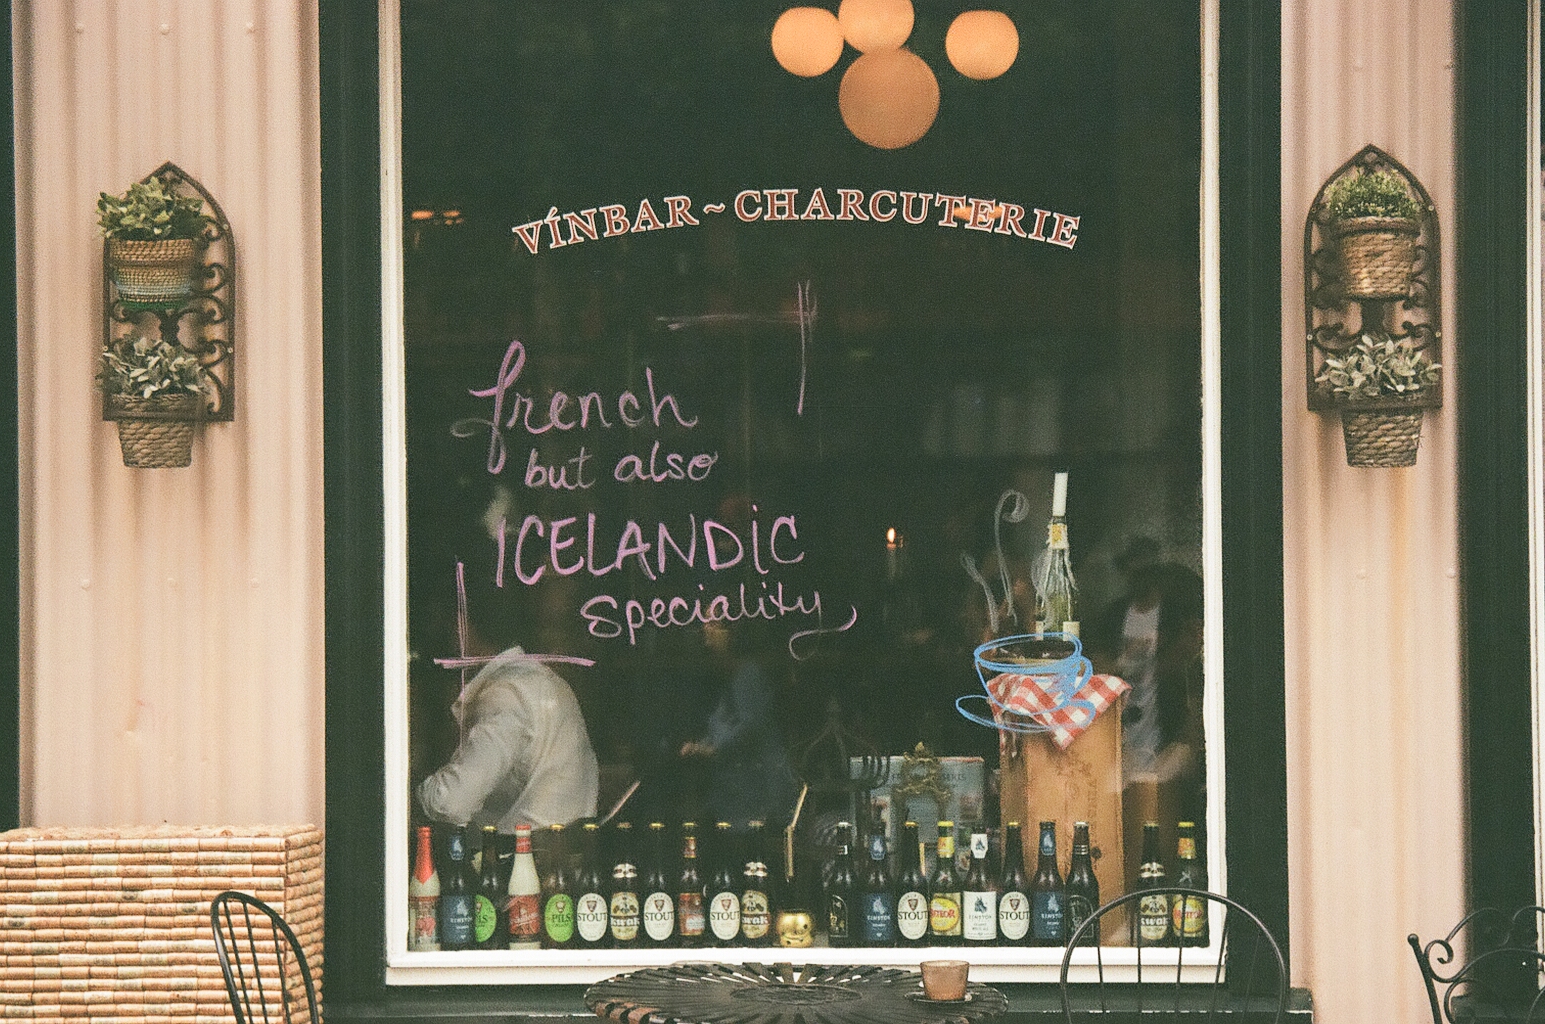 VÍNBAR ~ CHARCUTERIE
french
but also
ICELANDIC
Speciality
PILS
PILS
STOUT
STOUT
STOUT
STOUT
STOUT
METEOR